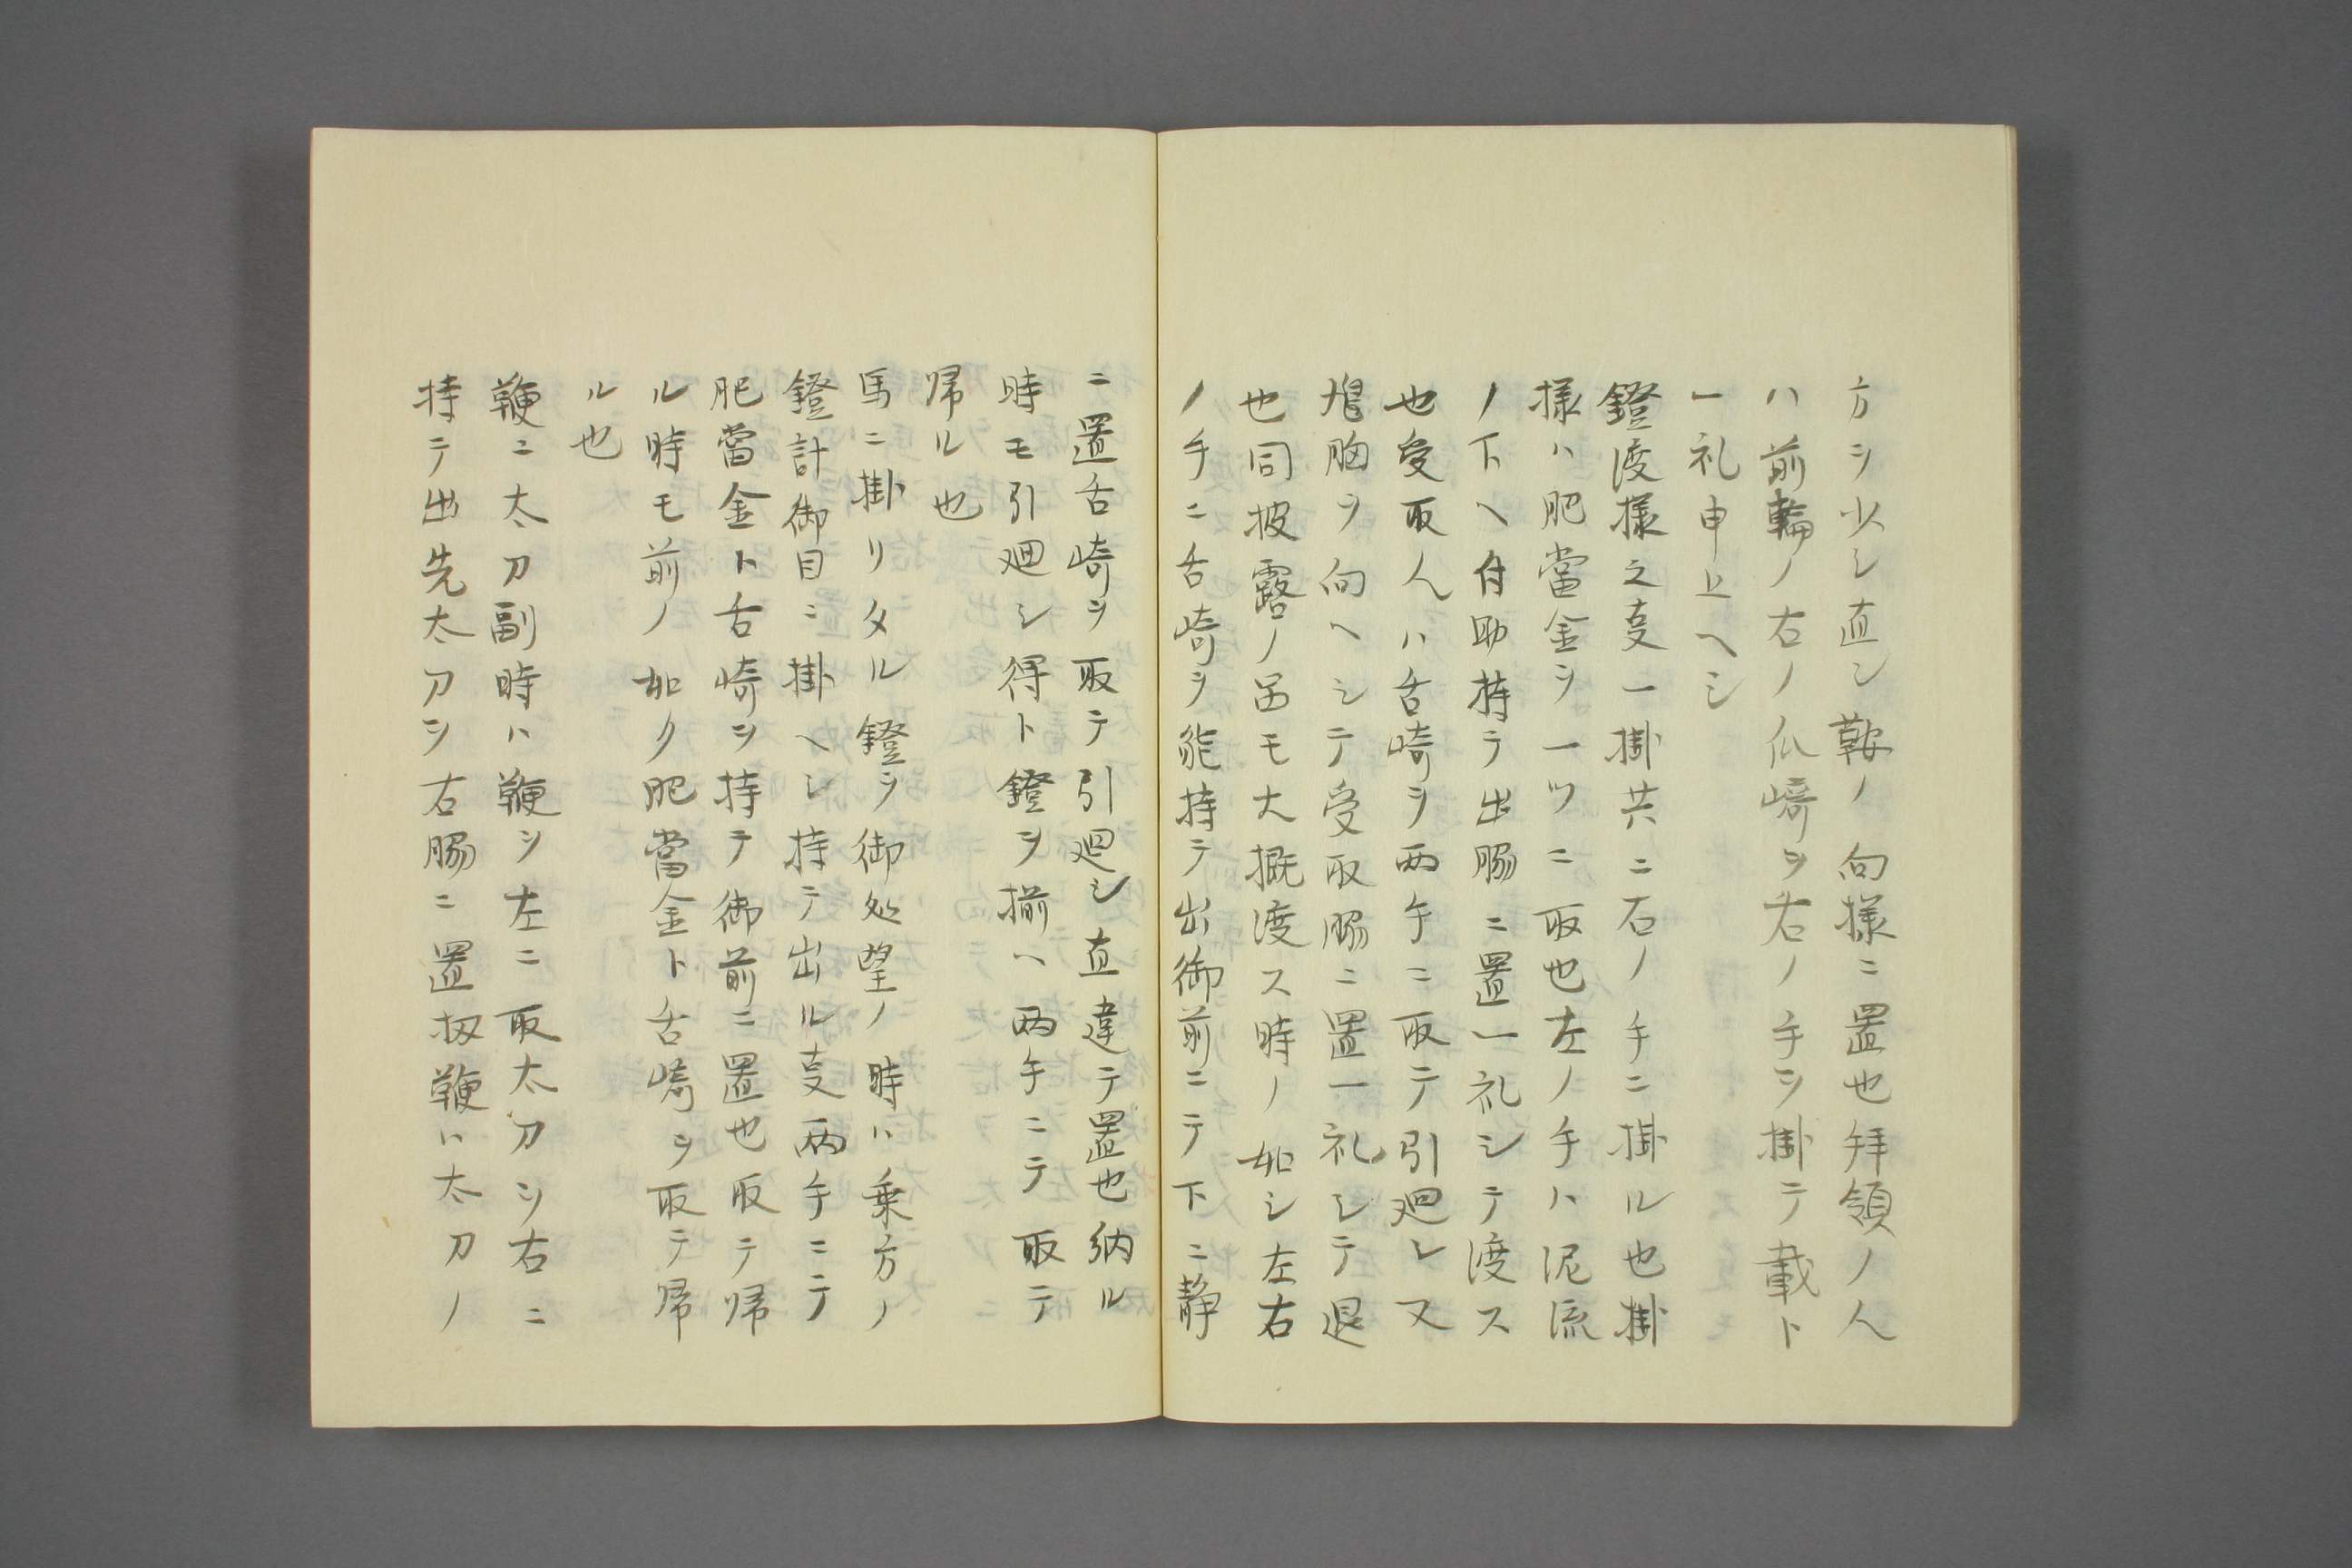 方ヲ少シ直シ鞍ノ向様ニ置也拜領ノ人
ハ前輪ノ右ノ爪崎ヲ右ノ手ヲ掛テ載ト
一礼申上ヘシ
鐙渡様之支一掛共ニ右ノ手ニ掛ル也掛
様ハ肥當金ヲ一ツニ取也左ノ手ハ泥流
ノ下ヘ付助持テ出膓ニ置一礼シテ渡ス
也受取人ハ舌崎ヲ両手ニ取テ引廻シ又
胸ヲ向ヘシテ受取膓ニ置一礼シテ退
也同披露ノ品モ大概渡ス時ノ如シ左右
ノ手ニ舌崎ヲ能持テ出御前ニテ下ニ静
ニ置舌崎ヲ取テ引廻シ直違テ置也納ル
時モ引廻シ得ト鐙ヲ揃ヘ両手ニテ取テ
帰ル也
馬ニ掛リタル鐙ヲ御処望ノ時ハ乗方ノ
鐙計御目ニ掛ヘシ持テ出ル支両手ニテ
肥當金ト舌崎ヲ持テ御前ニ置也取テ帰
ル時モ前ノ如ク肥當金ト舌崎ヲ取テ帰
ル也
鞭ニ太刀副時ハ鞭ヲ左ニ取太刀ヲ右ニ
持テ出先太刀ヲ右膓ニ置扨鞭ハ太刀ノ